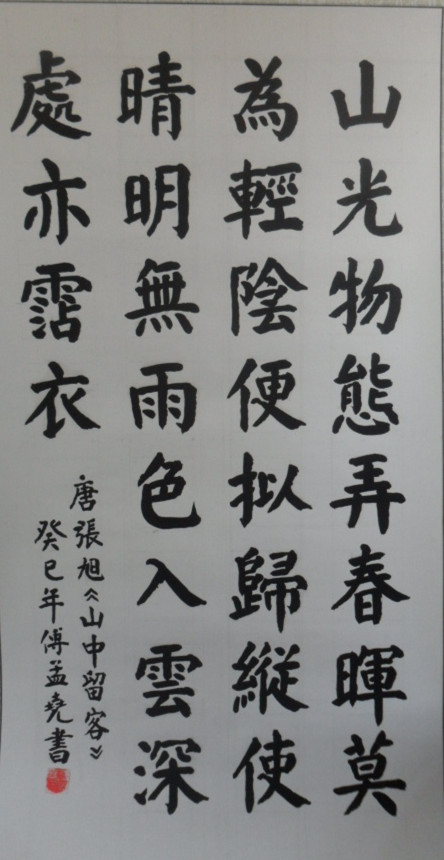 山光物態弄春暉莫
為輕陰便拟歸縱使
晴明無雨色入雲深
處亦霑衣
唐張旭《山中留客》
癸巳年傅孟堯書